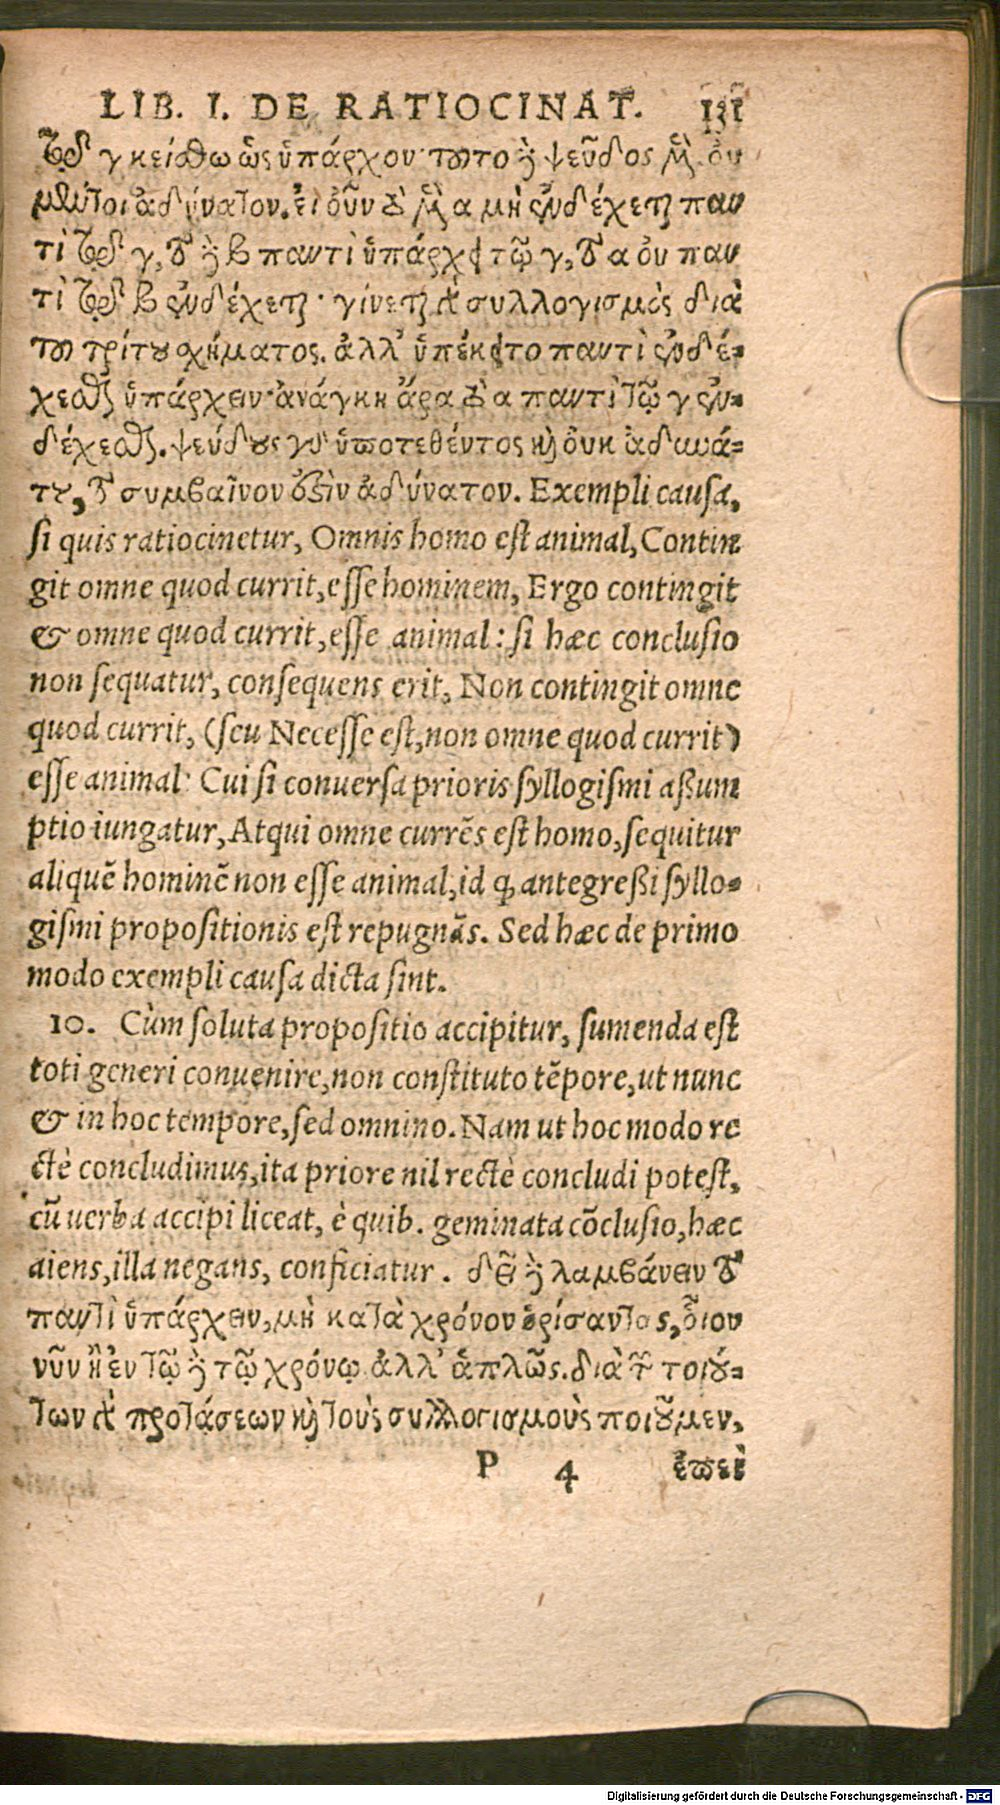 LIB. I. DE RATIOCINAT. 131
τῷ δὲ γ κείσθω ὡς ὑπάρχον· τοῦτο δὲ ψεῦδος μὲν οὐ
μέντοι ἀδύνατον. εἰ οὖν τὸ μὲν α μὴ ἐνδέχεται παν
τὶ τῷ γ, τὸ δὲ β παντὶ ὑπάρχει τῷ γ, τὸ α οὐ παν
τὶ τῷ β ἐνδέχεται· γίνεται γὰρ συλλογισμὸς διὰ
τοῦ τρίτου σχήματος. ἀλλ' ὑπέκειτο παντὶ ἐνδέ-
χεσθαι ὑπάρχειν· ἀνάγκη ἄρα τὸ α παντὶ τῷ γ ἐν-
δέχεσθαι. ψεύδους γὰρ ὑποτεθέντος καὶ οὐκ ἀδυνά-
του, τὸ συμβαῖνον ἐστὶν ἀδύνατον. Exempli causa,
si quis ratiocinetur, Omnis homo est animal, Contin
git omne quod currit, esse hominem, Ergo contingit
& omne quod currit, esse animal: si hæc conclusio
non sequatur, consequens erit, Non contingit omne
quod currit, (seu Necesse est, non omne quod currit)
esse animal: Cui si conuersa prioris syllogismi aßum
ptio iungatur, Atqui omne currēs est homo, sequitur
aliquē hominē non esse animal, id q; antegreßi syllo-
gismi propositionis est repugnās. Sed hæc de primo
modo exempli causa dicta sint.
10. Cùm soluta propositio accipitur, sumenda est
toti generi conuenire, non constituto tēpore, ut nunc
& in hoc tempore, sed omnino. Nam ut hoc modo re
ctè concludimus, ita priore nil rectè concludi potest,
cū uerba accipi liceat, è quib. geminata cōclusio, hæc
aiens, illa negans, conficiatur. δεῖ δὲ λαμβάνειν τὸ
παντὶ ὑπάρχειν, μὴ κατὰ χρόνον ὁρίσαντας, οἷον
νῦν ἢ ἐν τῷδε τῷ χρόνῳ ἀλλ' ἁπλῶς. διὰ τῶν τοιού-
των γὰρ προτάσεων καὶ τοὺς συλλογισμοὺς ποιοῦμεν,
P 4 ἐπεὶ
Digitalisierung gefördert durch die Deutsche Forschungsgemeinschaft - DFG